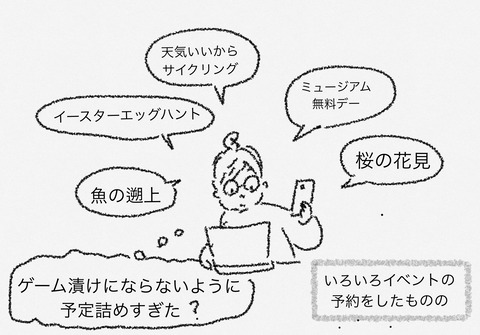 天気いいから
サイクリング
ミュージアム
無料デー
イースターエッグハント
桜の花見
魚の遡上
いろいろイベントの
予約をしたものの
ゲーム漬けにならないように
予定詰めすぎた？